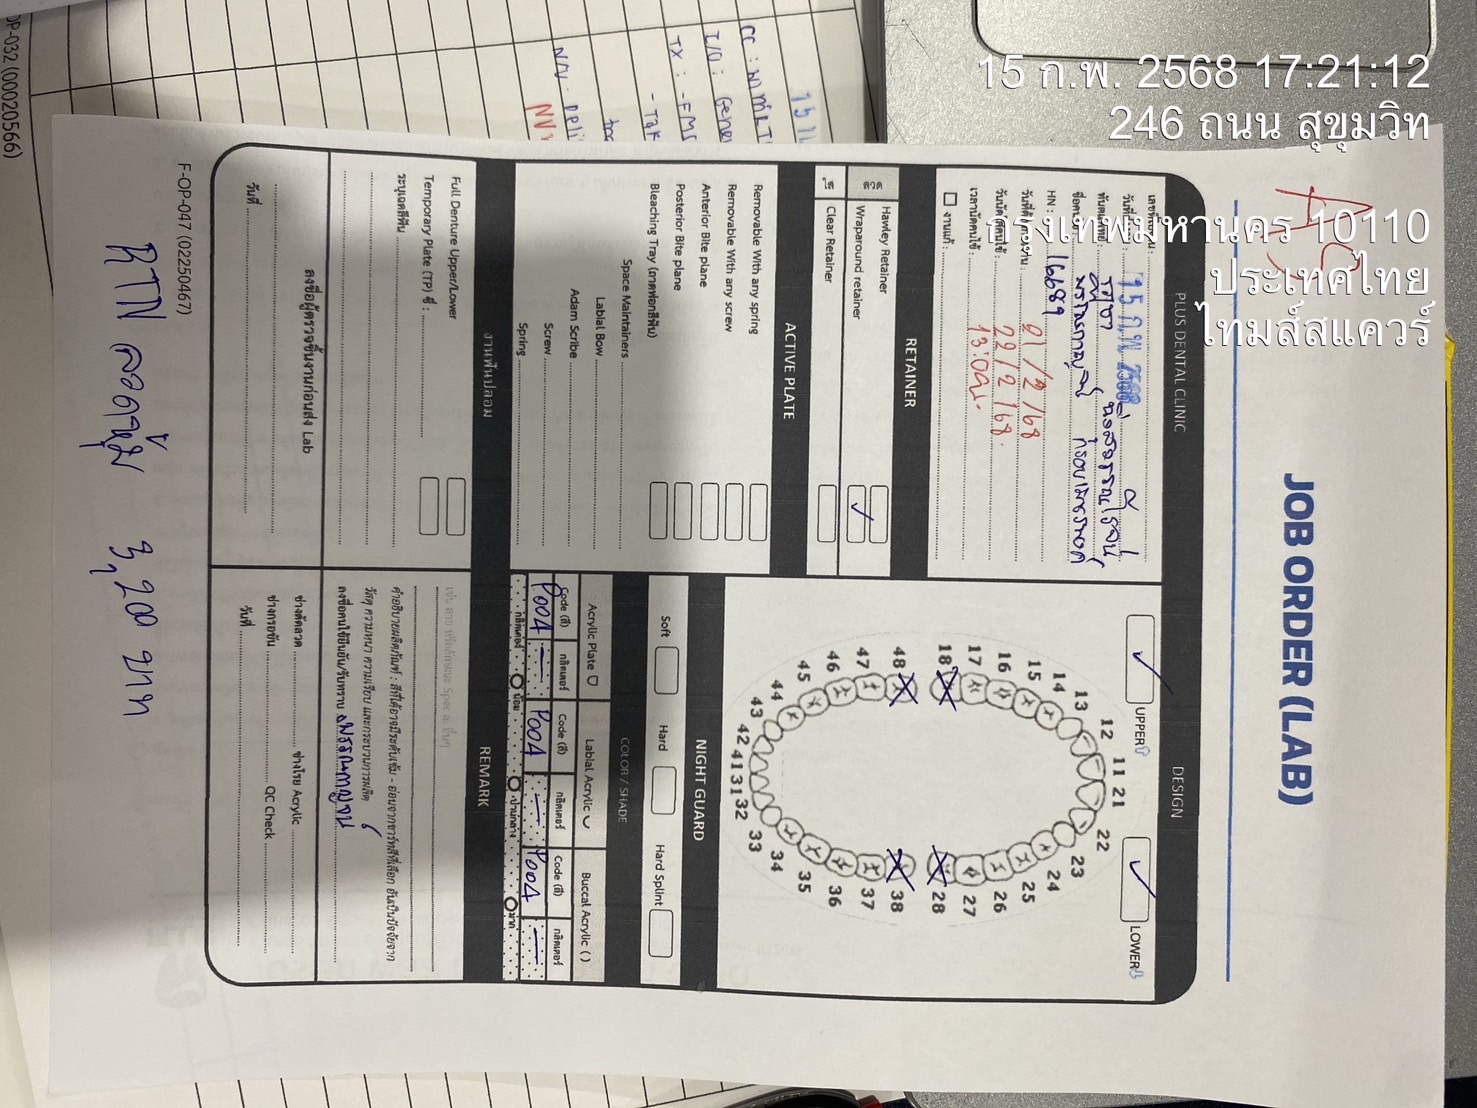 15 ก.พ. 2568 17:21:12
246 ถนน สุขุมวิท
กรุงเทพมหานคร 10110
ประเทศไทย
ไทม์สแควร์
OP-032 (00020566)
JOB ORDER (LAB)
PLUS DENTAL CLINIC
15 ก.พ. 2568
HN : 16689
22/2/68.
13:00น.
งานแก้ :
RETAINER
ลวด
Hawley Retainer
Wraparound retainer ✓
ใส
Clear Retainer
ACTIVE PLATE
Removable With any spring
Removable With any screw
Anterior Bite plane
Posterior Bite plane
Bleaching Tray (ถาดฟอกสีฟัน)
Space Maintainers
Labial Bow
Adam Scribe
Screw
Spring
งานฟันปลอม
Full Denture Upper/Lower
Temporary Plate (TP) ซี่ :
ระบุเฉดสีฟัน
ลงชื่อผู้ตรวจชิ้นงานก่อนส่ง Lab
วันที่
DESIGN
✓ UPPER
✓ LOWER
18 17 16 15 14 13 12 11 21 22 23 24 25 26 27 28
48 47 46 45 44 43 42 41 31 32 33 34 35 36 37 38
NIGHT GUARD
Soft
Hard
Hard Splint
COLOR / SHADE
Acrylic Plate
Labial Acrylic
Buccal Acrylic ( )
Code (สี) กลิตเตอร์ Code (สี) กลิตเตอร์ Code (สี) กลิตเตอร์
P004 — P004 — P004 —
กลิตเตอร์ น้อย ปานกลาง มาก
REMARK
คำอธิบายผลิตภัณฑ์ : สีที่ได้อาจมีระดับเข้ม - อ่อนจากชาร์ทสีที่เลือก อันเป็นปัจจัยจาก
วัสดุ ความหนา ความเรียบ และกระบวนการผลิต
ลงชื่อคนไข้ยืนยัน/รับทราบ
ช่างดัดลวด ช่างโรย Acrylic
ช่างกรอขัด QC Check
วันที่
F-OP-047 (02250467)
RTN ลวดหุ้ม 3,200 บาท